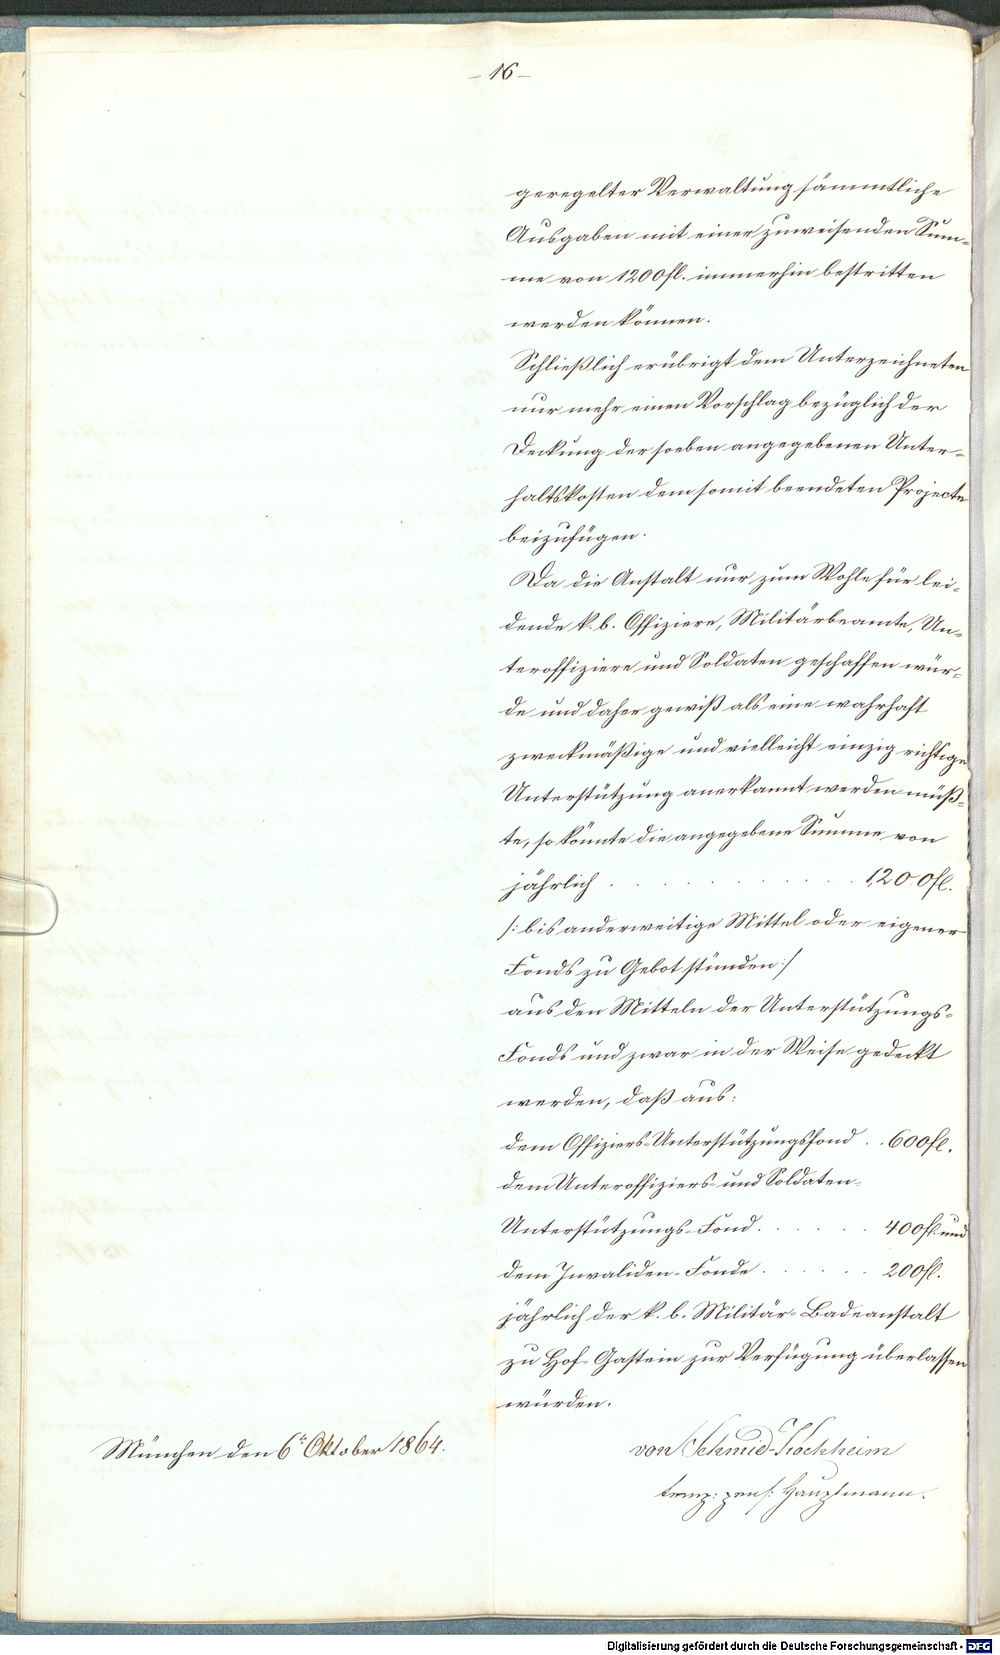 - 16 -
geregelter Verwaltung sämmtliche
Ausgaben mit einer zuweisenden Sum-
me von 1200 fl. immerhin bestritten
werden können.
Schließlich erübrigt dem Unterzeichneten
nur mehr einen Vorschlag bezüglich der
Deckung der soeben angegebenen Unter-
haltskosten dem somit beendeten Projecte
beizufügen.
Da die Anstalt nur zum Wohle für lei-
dende k. b. Offiziere, Militärbeamte, Un-
teroffiziere und Soldaten geschaffen wür-
de und daher gewiß als eine wahrhaft
zweckmäßige und vielleicht einzig richtige
Unterstützung anerkannt werden müß-
te, so könnte die angegebene Summe von
jährlich . . . . . . . . . . 1200 fl.
/: bis anderweitige Mittel oder eigener
Fonds zu Gebot stünden :/
aus den Mitteln der Unterstützungs-
Fonds und zwar in der Weise gedeckt
werden, daß aus:
dem Offiziers-Unterstützungsfond . . 600 fl.
dem Unteroffiziers- und Soldaten-
Unterstützungs-Fond . . . . . . 400 fl. und
dem Invaliden-Fonde . . . . . . 200 fl.
jährlich der k. b. Militär-Badeanstalt
zu Hof-Gastein zur Verfügung überlassen
würden.
München den 6t. Oktober 1864.
von Schmid-Kochheim
temp: pens: Hauptmann.
Digitalisierung gefördert durch die Deutsche Forschungsgemeinschaft - DFG